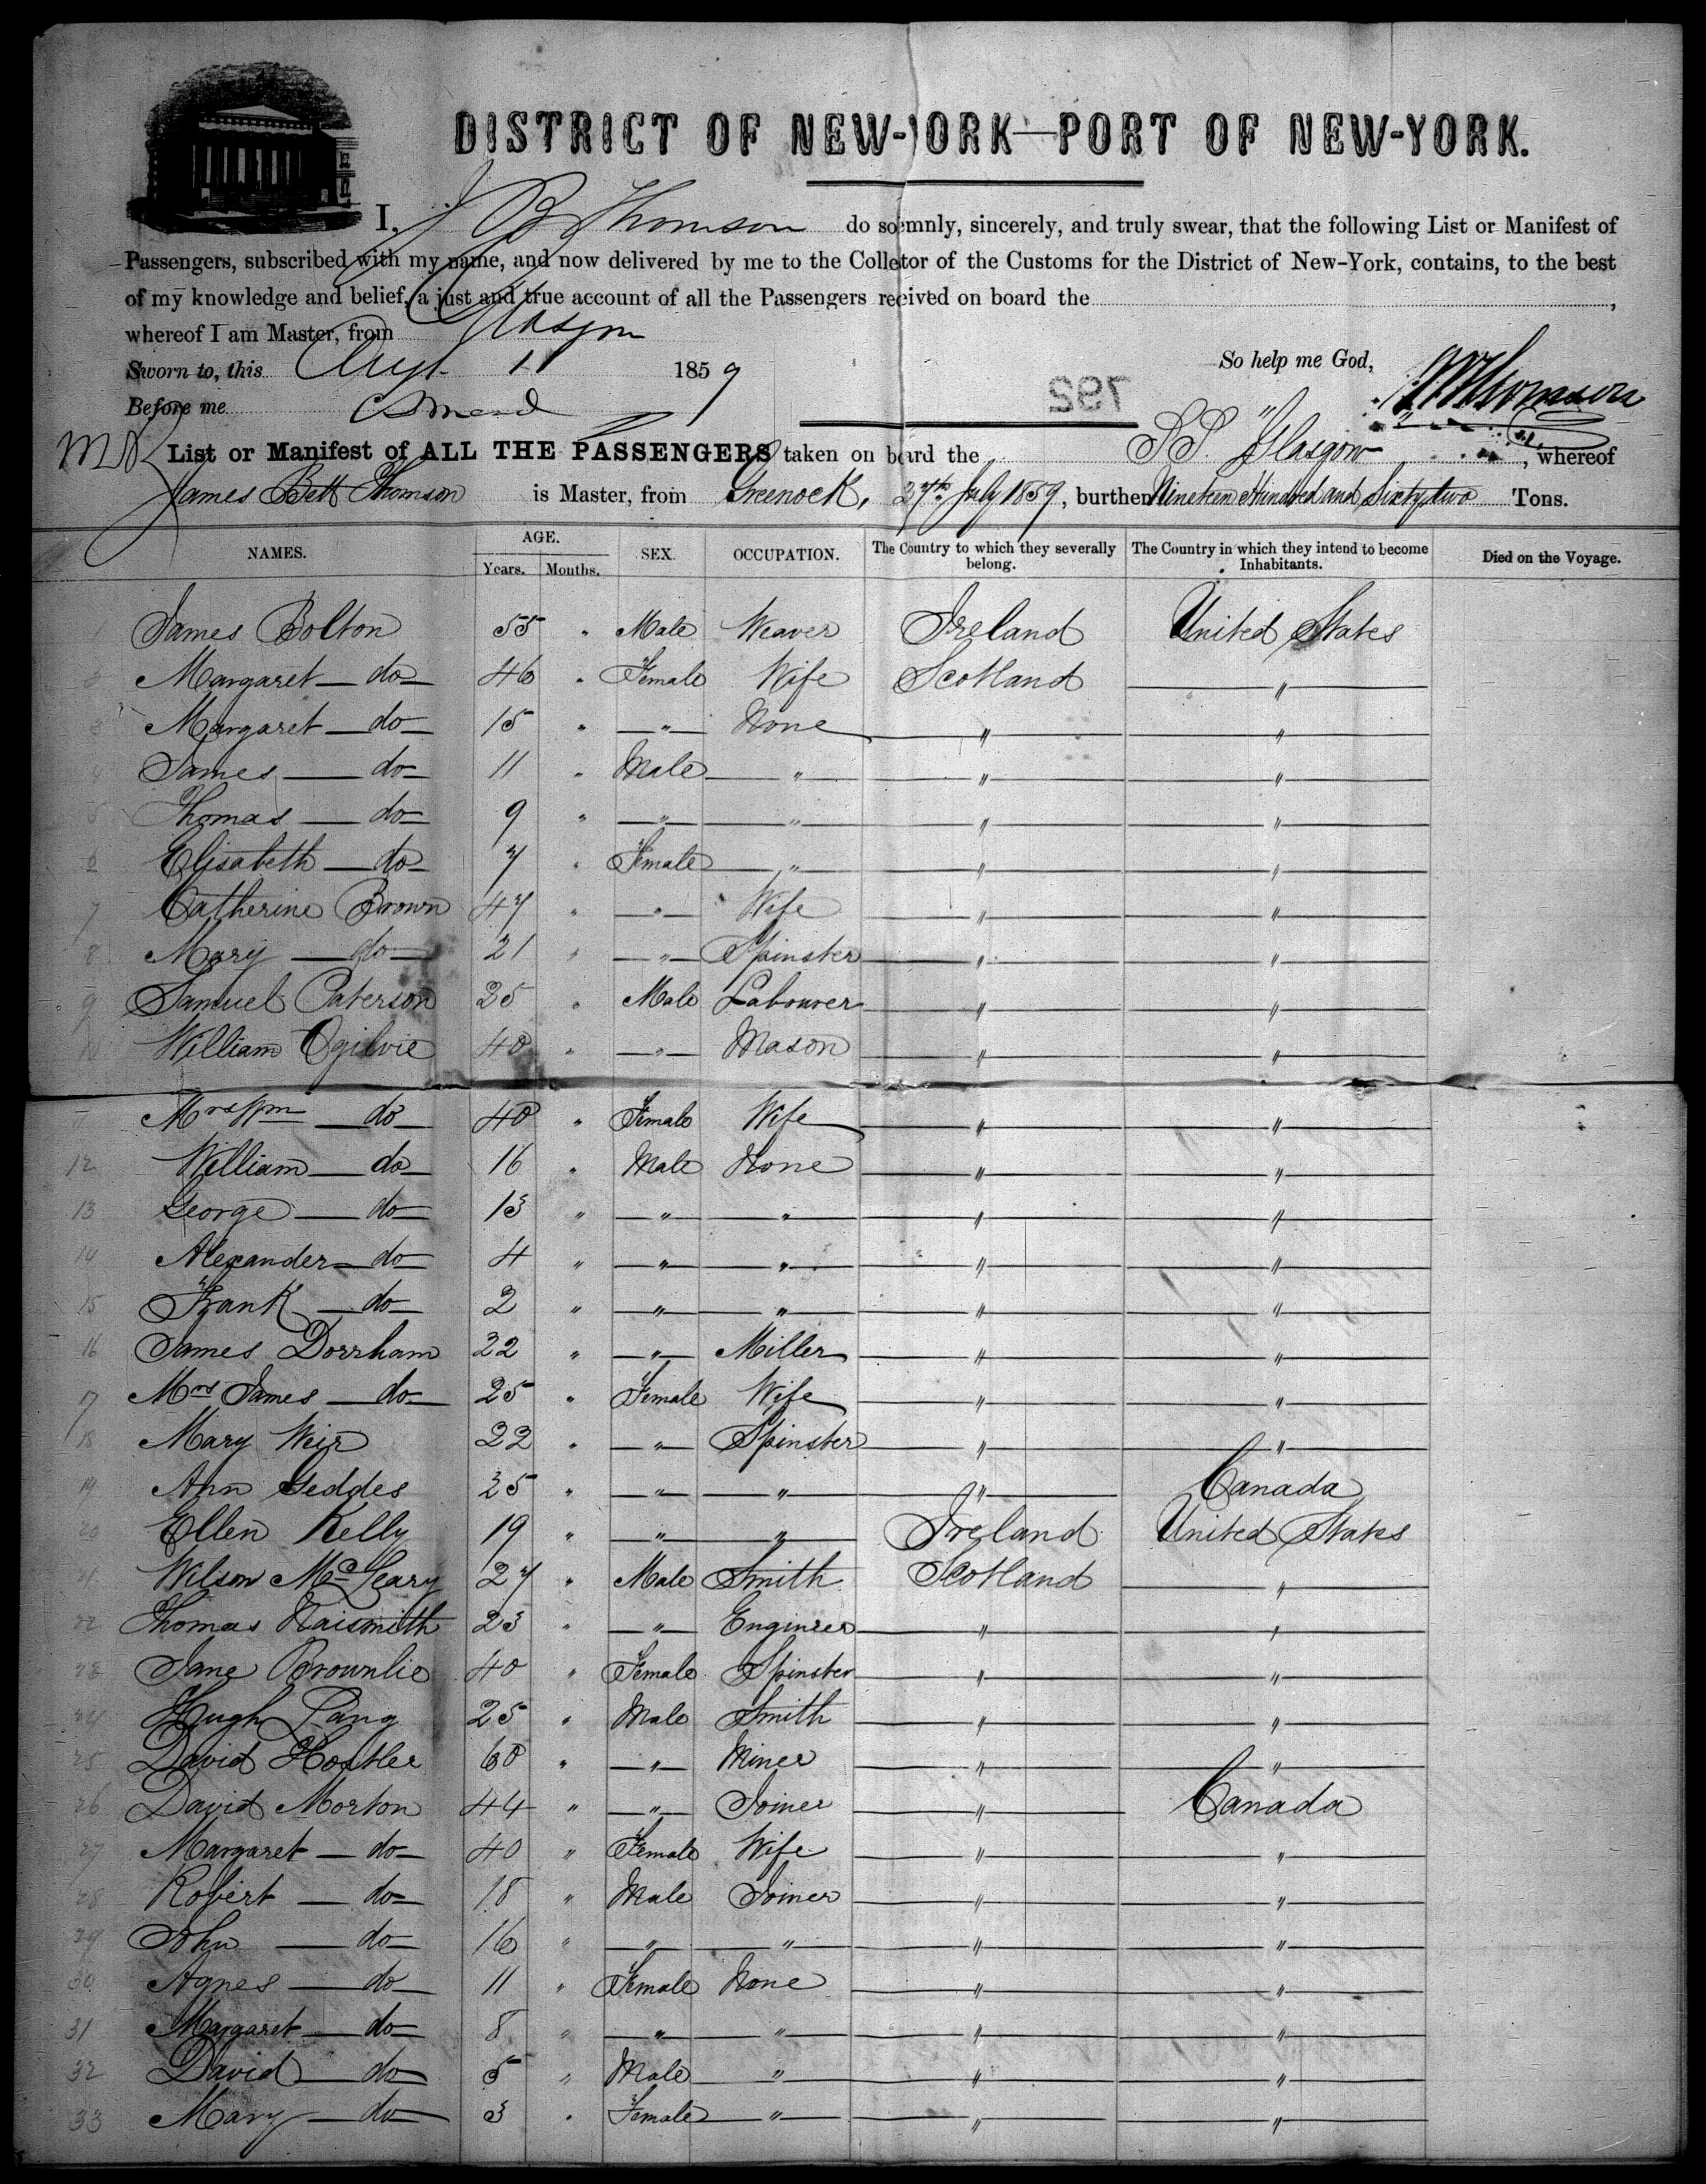 DISTRICT OF NEW-YORK—PORT OF NEW-YORK.
I, J B Thomson do solemnly, sincerely, and truly swear, that the following List or Manifest of
Passengers, subscribed with my name, and now delivered by me to the Colletor of the Customs for the District of New-York, contains, to the best
of my knowledge and belief, a just and true account of all the Passengers recived on board the ,
whereof I am Master, from Glasgow
Sworn to, this Augt 11 1859 So help me God, J B Thomson
Before me
792
List or Manifest of ALL THE PASSENGERS taken on board the S.S. "Glasgow", whereof
James Bett Thomson is Master, from Greenock, 27th July 1859, burthen Nineteen Hundred and Sixty two Tons.
NAMES. AGE. Years. Months. SEX. OCCUPATION. The Country to which they severally belong. The Country in which they intend to become Inhabitants. Died on the Voyage.
James Bolton 55 " Male Weaver Ireland United States
Margaret — do 46 " Female Wife Scotland "
3 Margaret — do 15 " " None " "
4 James — do 11 " Male " " "
5 Thomas — do 9 " " " " "
6 Elisabeth — do 7 " Female " " "
7 Catherine Brown 47 " " Wife " "
8 Mary — do 21 " " Spinster " "
9 Samuel Paterson 25 " Male Labourer " "
10 William Ogilvie 40 " " Mason " "
Mrs Wm — do 40 " Female Wife " "
12 William — do 16 " Male None " "
13 George — do 13 " " " " "
14 Alexander — do 4 " " " " "
15 Frank — do 2 " " " " "
16 James Dorrham 22 " " Miller " "
17 Mrs James — do 25 " Female Wife " "
18 Mary Weir 22 " " Spinster " "
19 Ann Geddes 25 " " " " Canada
20 Ellen Kelly 19 " " " Ireland United States
21 Wilson McGeary 27 " Male Smith Scotland "
22 Thomas Naismith 23 " " Engineer " "
23 Jane Brownlie 40 " Female Spinster " "
24 Hugh Lang 25 " Male Smith " "
25 David Hostler 60 " " Miner " "
26 David Morton 44 " " Joiner " Canada
27 Margaret — do 40 " Female Wife " "
28 Robert — do 18 " Male Joiner " "
29 John — do 16 " " " " "
30 Agnes — do 11 " Female None " "
31 Margaret — do 8 " " " " "
32 David — do 5 " Male " " "
33 Mary — do 3 " Female " " "